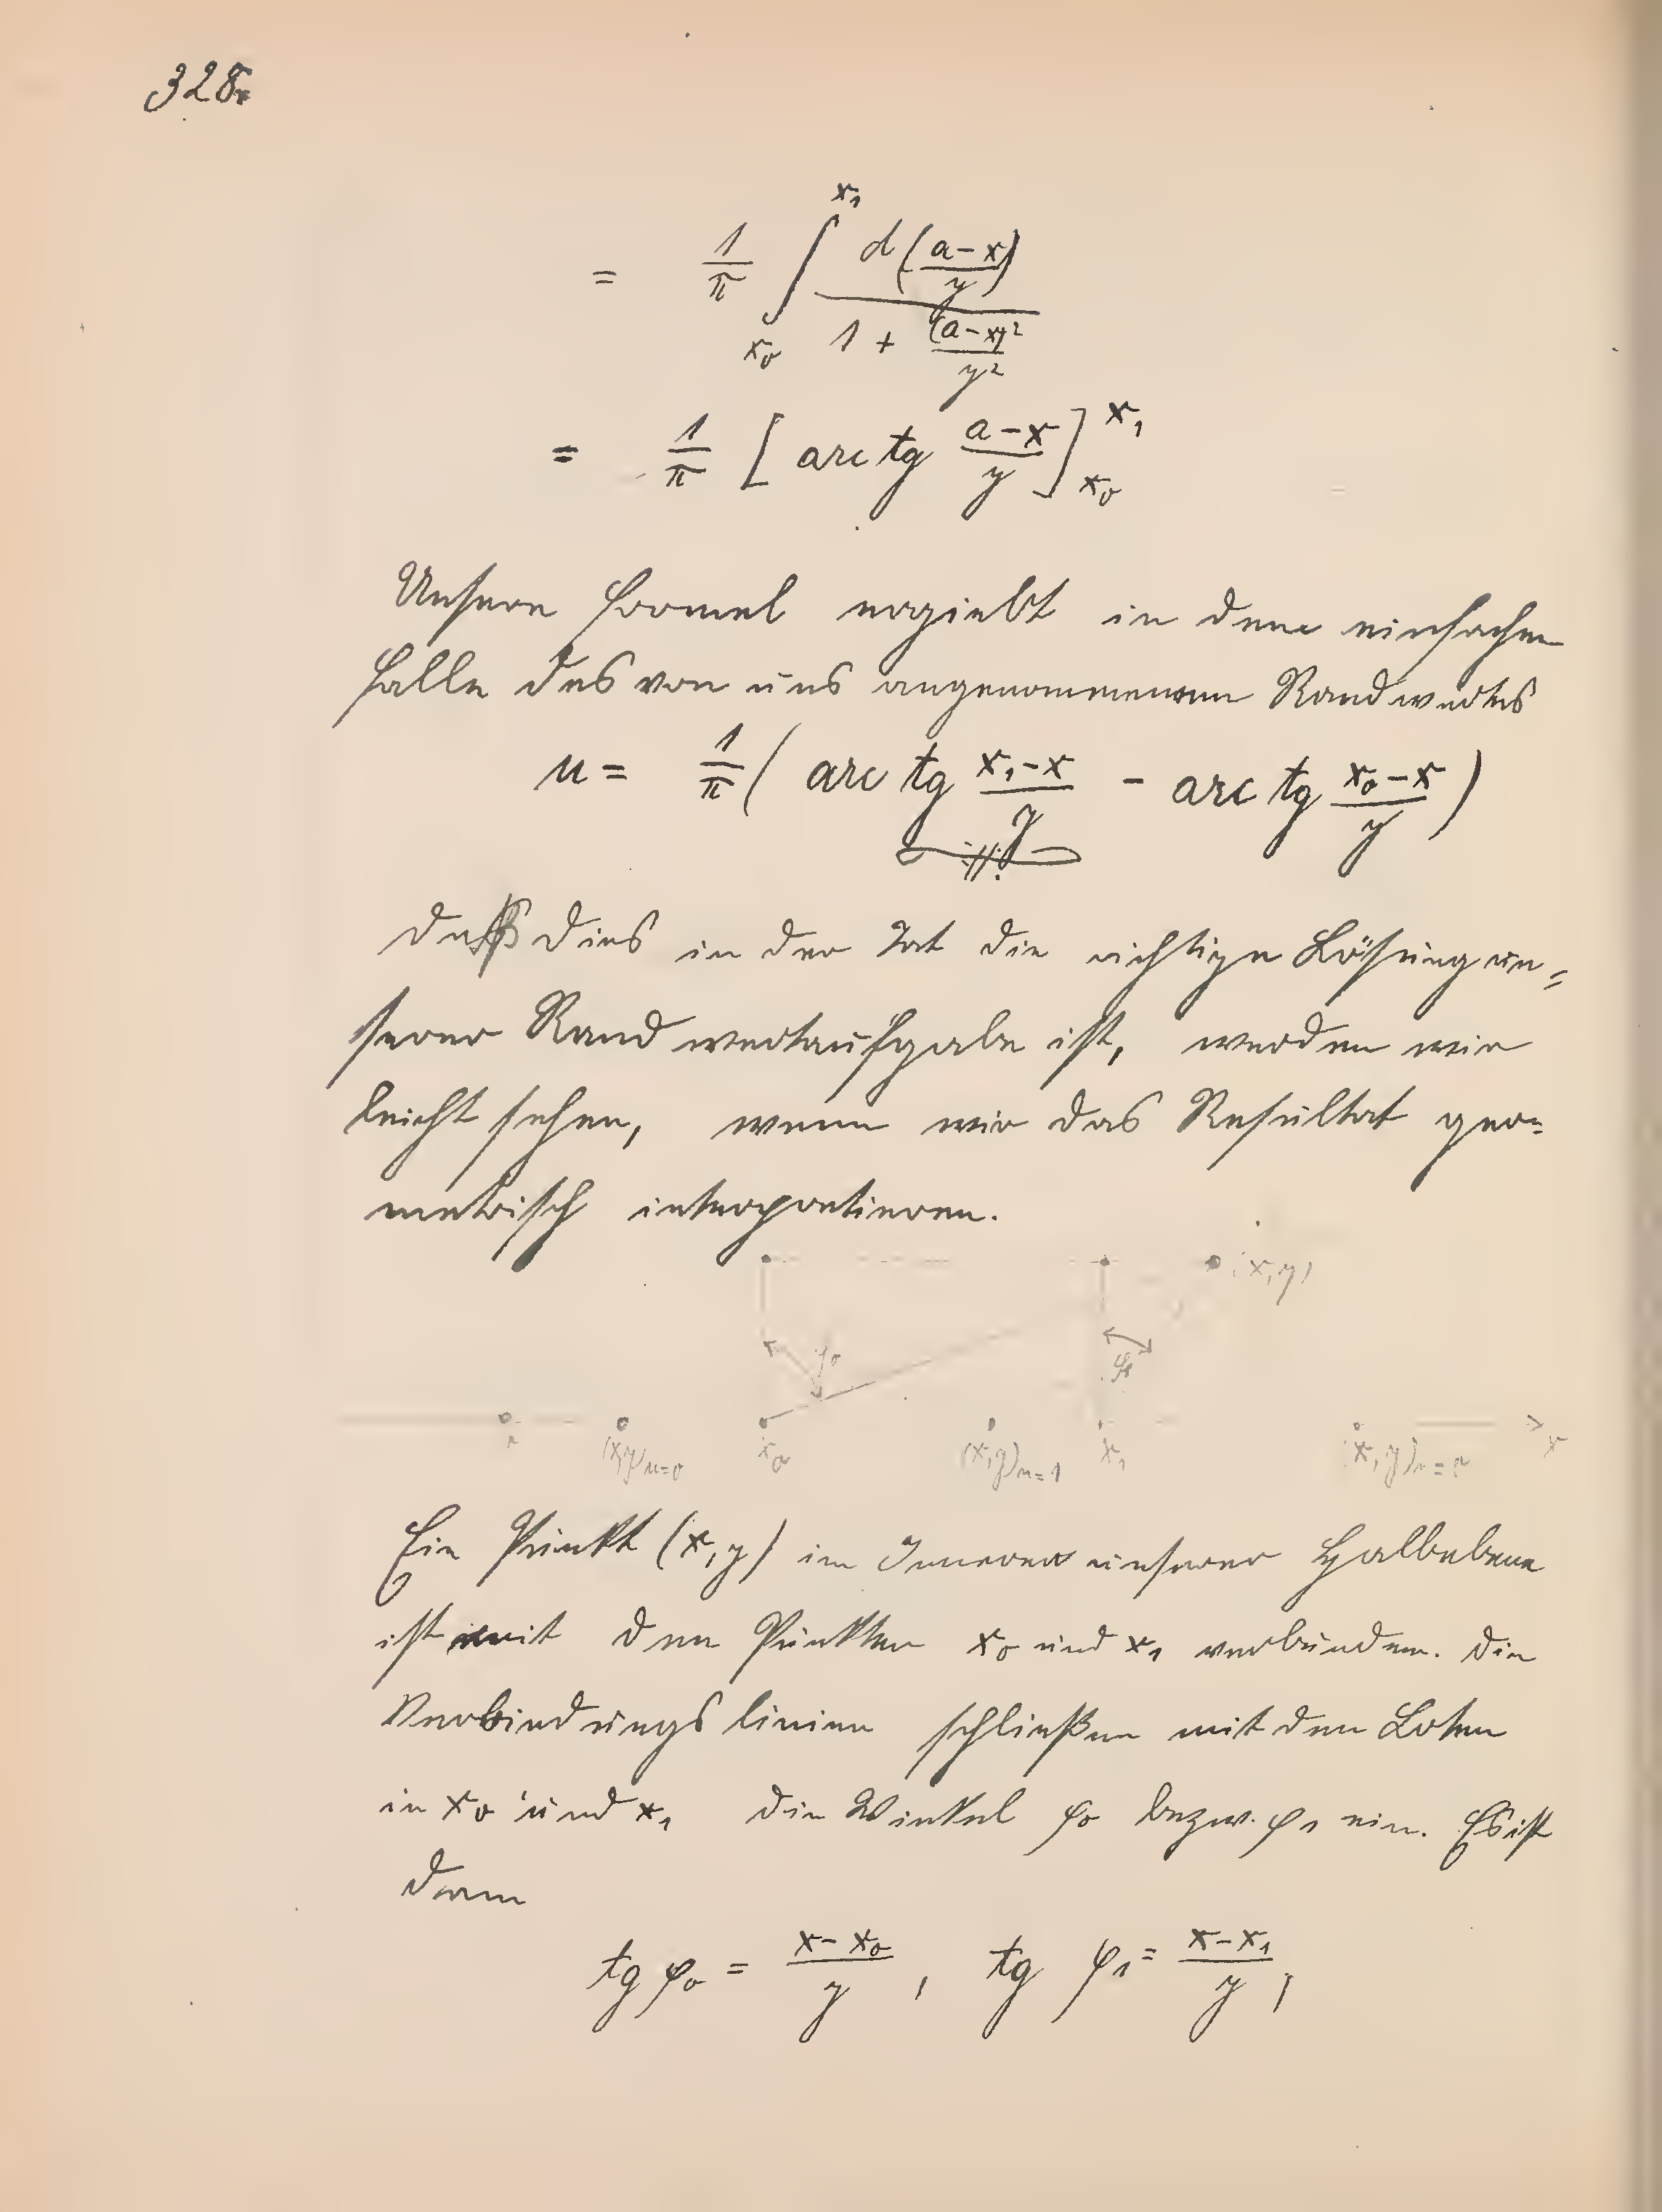 328.
= 1/π ∫_{x₀}^{x₁} d((a-x)/y) / (1 + (a-x)²/y²)
= 1/π [arc tg (a-x)/y]_{x₀}^{x₁}
Unsere Formel ergiebt in dem einfachen
Falle des von uns angenommenen Randwertes
u = 1/π (arc tg (x₁-x)/y - arc tg (x₀-x)/y)
Daß dies in der Tat die richtige Lösung un=
serer Randwertaufgabe ist, werden wir
leicht sehen, wenn wir das Resultat geo=
metrisch interpretieren.
(x,y)
φ₀ φ₁
(x,y)u=0 x₀ (x,y)u=1 x₁ (x,y)u=0 x
Ein Punkt (x,y) im Inneren unserer Halbebene
ist mit den Punkten x₀ und x₁ verbunden. Die
Verbindungslinien schließen mit den Loten
in x₀ und x₁ die Winkel φ₀ bezw. φ₁ ein. Es ist
dann
tg φ₀ = (x-x₀)/y , tg φ₁ = (x-x₁)/y ,